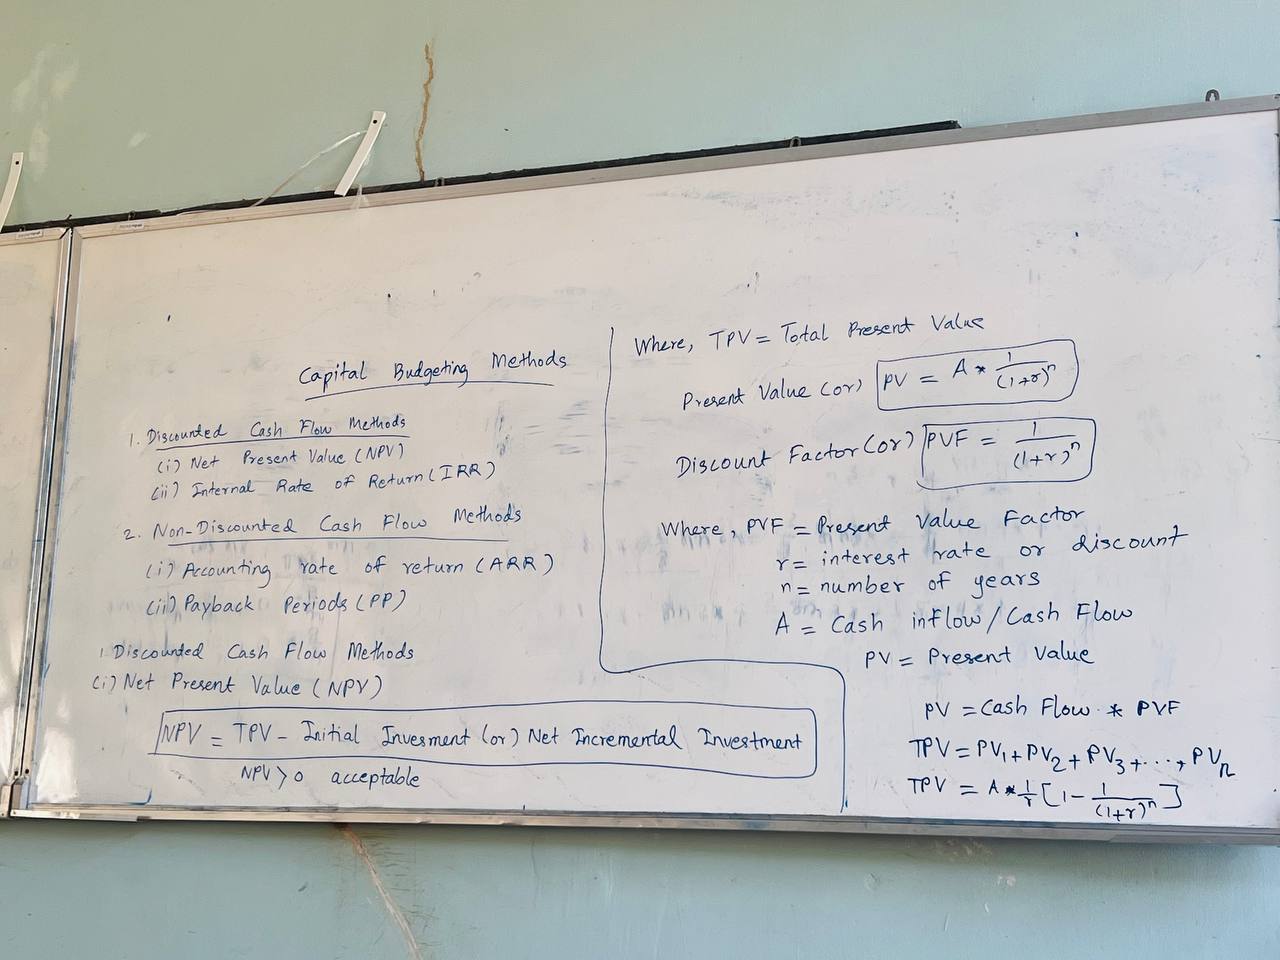 Capital Budgeting Methods
1. Discounted Cash Flow Methods
(i) Net Present Value (NPV)
(ii) Internal Rate of Return (IRR)
2. Non-Discounted Cash Flow Methods
(i) Accounting rate of return (ARR)
(ii) Payback Periods (PP)
1. Discounted Cash Flow Methods
(i) Net Present Value (NPV)
NPV = TPV - Initial Invesment (or) Net Incremental Investment
NPV > 0 acceptable
Where, TPV = Total Present Value
Present Value (or) PV = A * 1/(1+r)^n
Discount Factor (or) PVF = 1/(1+r)^n
Where, PVF = Present Value Factor
r = interest rate or discount
n = number of years
A = Cash inflow / Cash Flow
PV = Present Value
PV = Cash Flow * PVF
TPV = PV₁ + PV₂ + PV₃ + ..., PVn
TPV = A * 1/r [1 - 1/(1+r)^n]